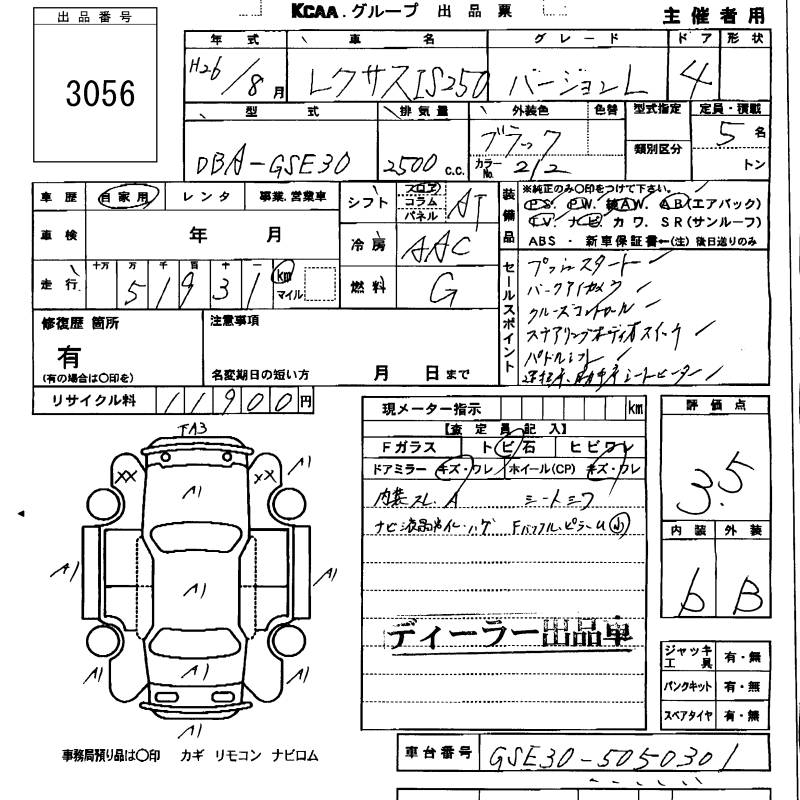 KCAA.グループ 出品票
主催者用
出品番号
3056
年式 車名 グレード ドア 形状
H26/8月 レクサスIS250 バージョンL 4
型式 排気量 外装色 色替 型式指定 定員・積載
類別区分
DBA-GSE30 2500c.c. ブラック 5名
カラーNo. 212 トン
車歴 自家用 レンタ 事業.営業車
車検 年 月
走行 十万 万 千 百 十 一
51931 km マイル
シフト フロア コラム パネル AT
冷房 AAC
燃料 G
装備品
※純正のみ〇印をつけて下さい。
PS. PW. 純AW. AB(エアバック)
TV. ナビ カワ. SR(サンルーフ)
ABS ・ 新車保証書←(注) 後日送りのみ
セールスポイント
プッシュスタート
バークアイカメラ
クルーズコントロール
ステアリングオーディオスイッチ
パドルシフト
運転席、助手席シートヒーター
修復歴 箇所
有
(有の場合は〇印を)
注意事項
名変期日の短い方 月 日まで
リサイクル料 11900円
現メーター指示 km
【査定員記入】
Fガラス トビ石 ヒビワレ
ドアミラー キズ・ワレ ホイール(CP) キズ・ワレ
内装スレ.A シートシワ
ナビ液晶
ディーラー出品車
評価点
3.5
内装 外装
b B
FA3
XX A1 XX A1
A1
A1 A1 A1
A1 A1 A1
A1
ジャッキ工具 有・無
パンクキット 有・無
スペアタイヤ 有・無
事務局預り品は〇印 カギ リモコン ナビロム
車台番号 GSE30-5050301